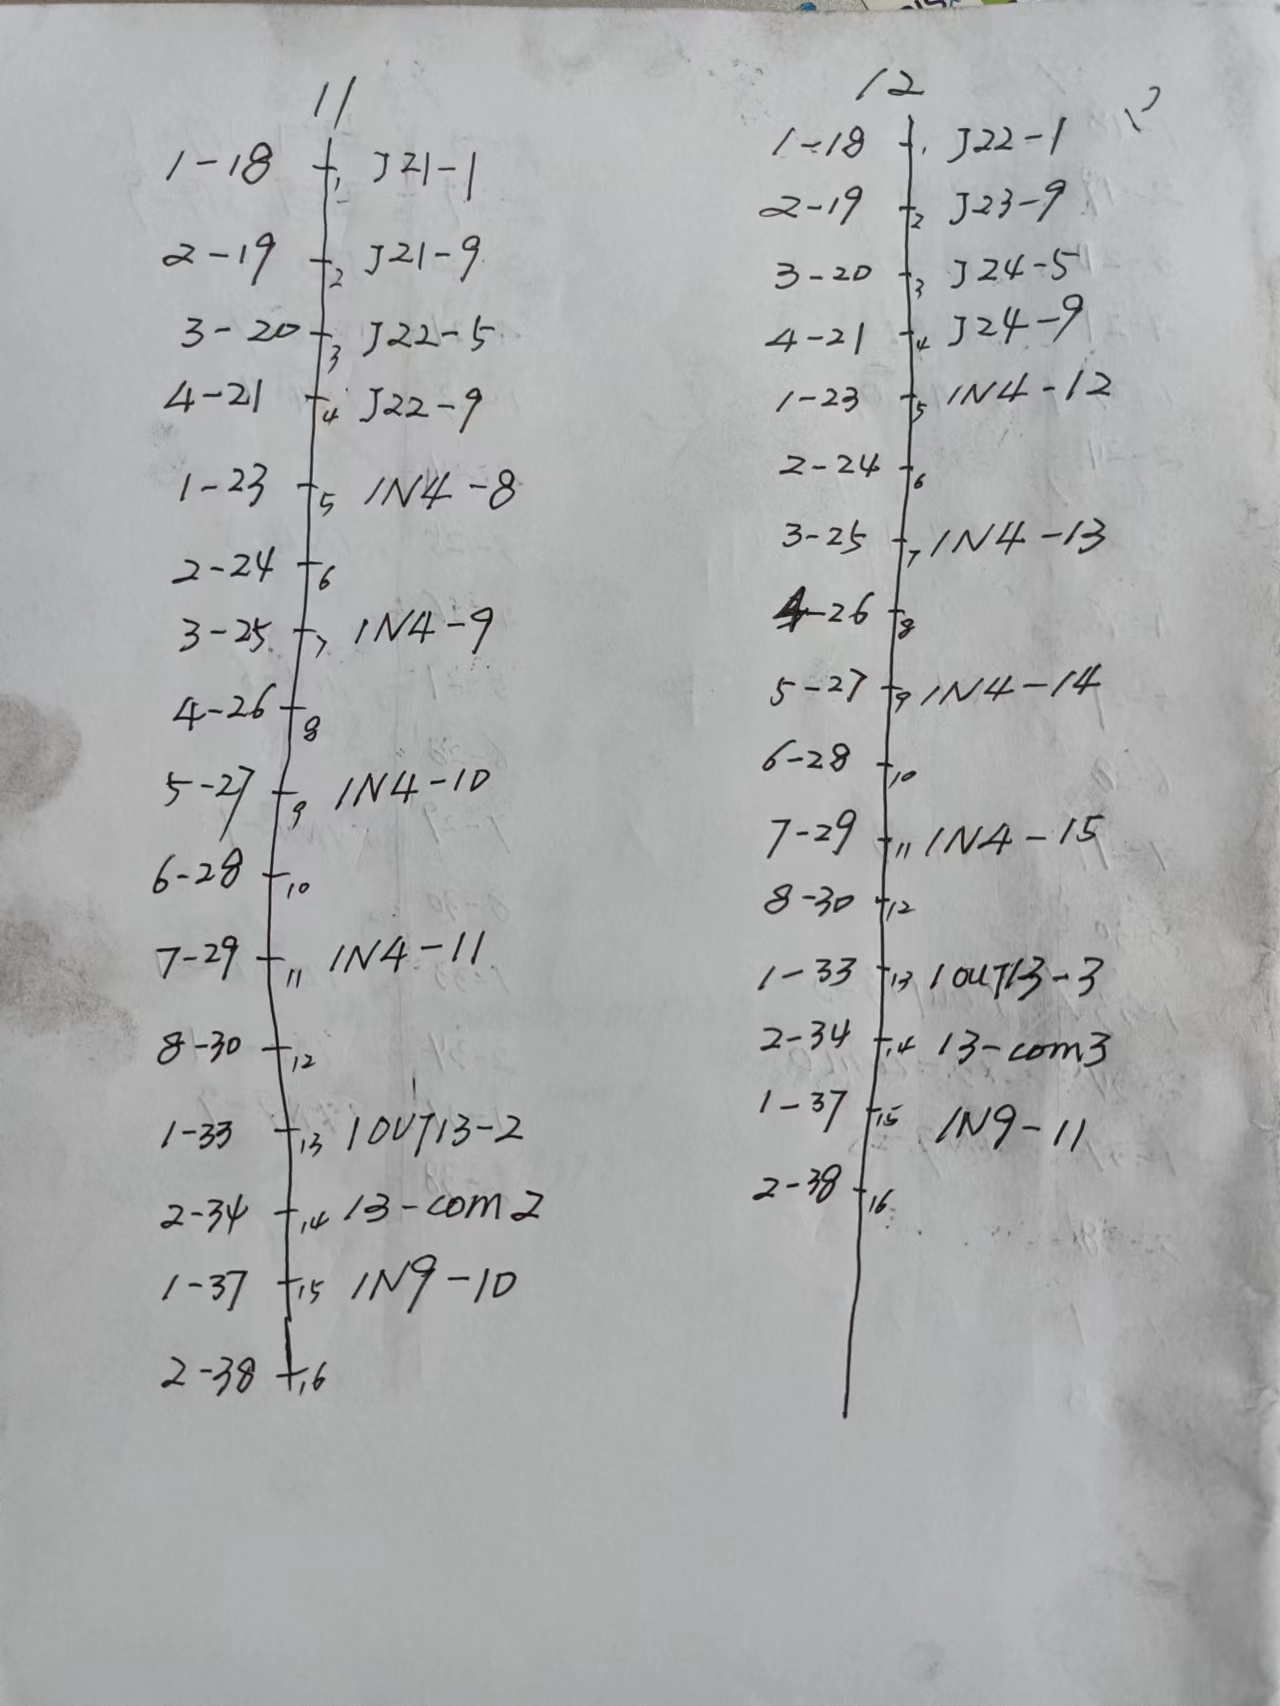 11
1-18 1 J21-1
2-19 2 J21-9
3-20 3 J22-5
4-21 4 J22-9
1-23 5 IN4-8
2-24 6
3-25 7 IN4-9
4-26 8
5-27 9 IN4-10
6-28 10
7-29 11 IN4-11
8-30 12
1-33 13 IOUT13-2
2-34 14 13-com2
1-37 15 IN9-10
2-38 16
12
1-18 1 J22-1
2-19 2 J23-9
3-20 3 J24-5
4-21 4 J24-9
1-23 5 IN4-12
2-24 6
3-25 7 IN4-13
4-26 8
5-27 9 IN4-14
6-28 10
7-29 11 IN4-15
8-30 12
1-33 13 IOUT13-3
2-34 14 13-com3
1-37 15 IN9-11
2-38 16